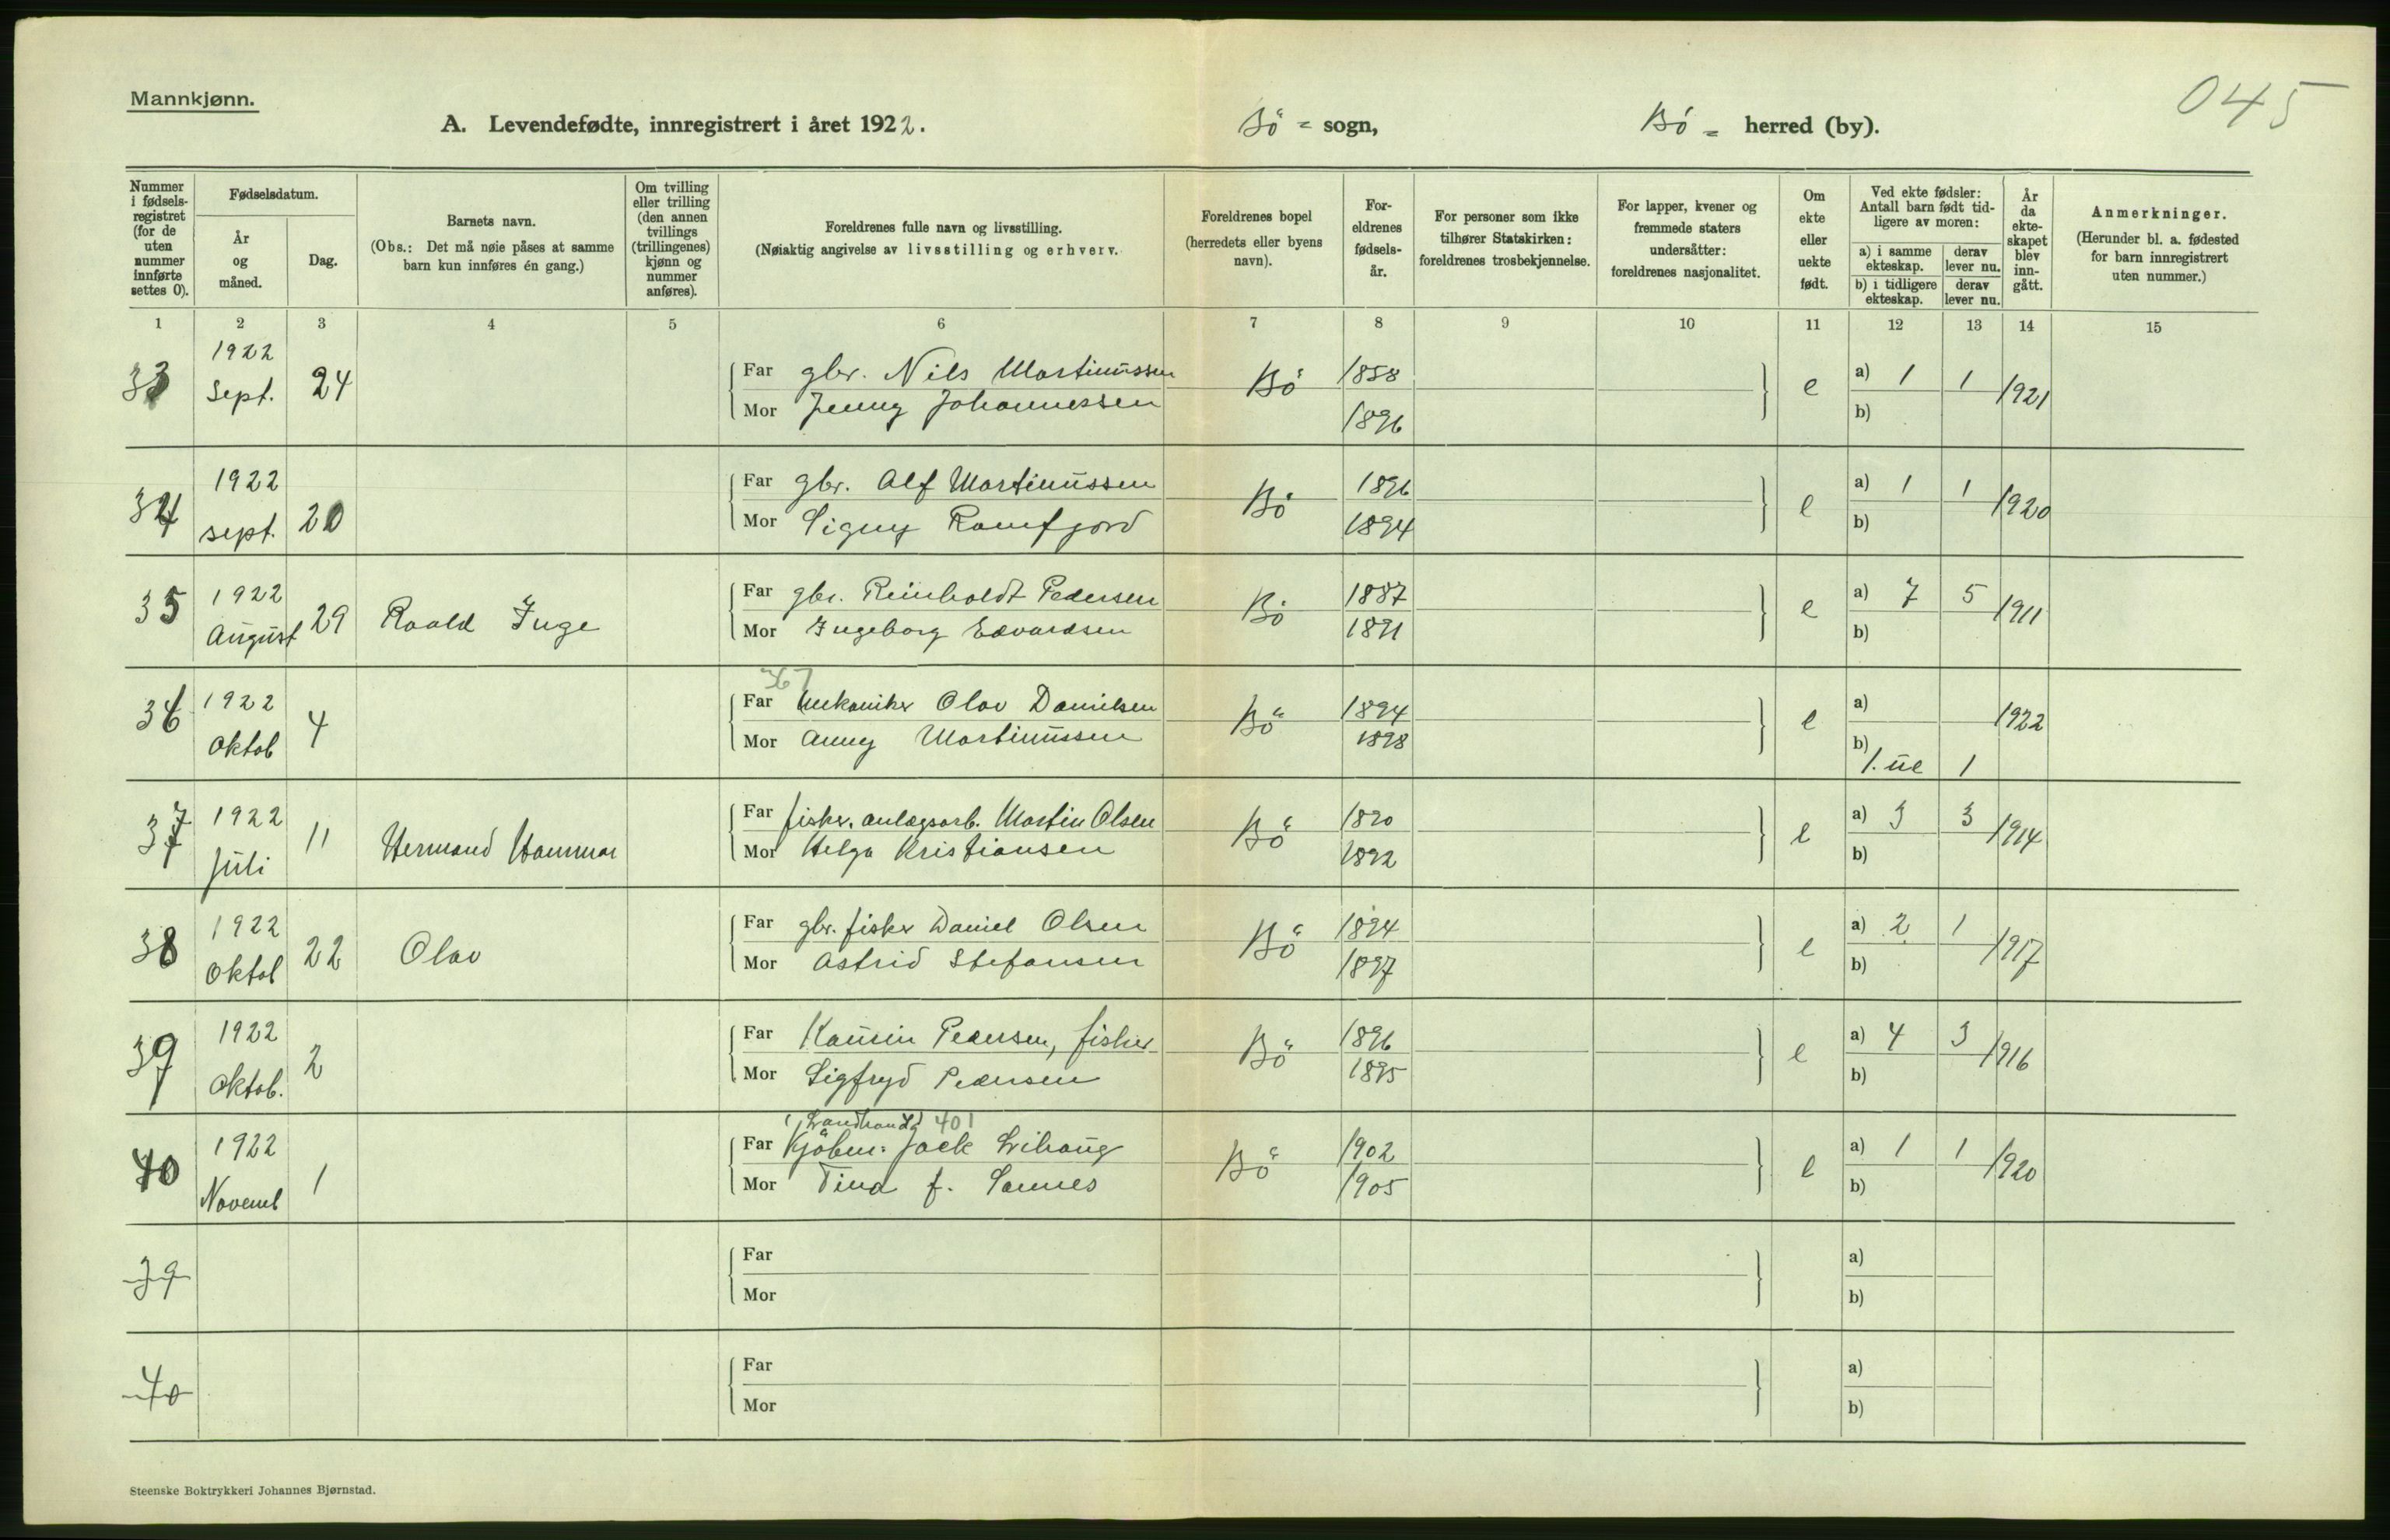 Mannkjønn.
045
A. Levendefødte, innregistrert i året 1922. Bö = sogn, Bö = herred (by).
Nummer i fødselsregistret (for de uten nummer innførte settes 0).
Fødselsdatum.
År og måned.
Dag.
Barnets navn.
(Obs.: Det må nøie påses at samme barn kun innføres én gang.)
Om tvilling eller trilling (den annen tvillings (trillingenes) kjønn og nummer anføres).
Foreldrenes fulle navn og livsstilling.
(Nøiaktig angivelse av livsstilling og erhverv.
Foreldrenes bopel (herredets eller byens navn).
Foreldrenes fødselsår.
For personer som ikke tilhører Statskirken: foreldrenes trosbekjennelse.
For lapper, kvener og fremmede staters undersåtter: foreldrenes nasjonalitet.
Om ekte eller uekte født.
Ved ekte fødsler: Antall barn født tidligere av moren:
a) i samme ekteskap. derav lever nu.
b) i tidligere ekteskap. derav lever nu.
År da ekteskapet blev inngått.
Anmerkninger.
(Herunder bl. a. fødested for barn innregistrert uten nummer.)
1 2 3 4 5 6 7 8 9 10 11 12 13 14 15
33 1922 Sept. 24 Far gbr. Nils Martinussen Bö 1858 e a) 1 1 1921
Mor Jenny Johannessen 1896 b)
34 1922 sept. 20 Far gbr. Alf Martinussen Bö 1896 e a) 1 1 1920
Mor Signy Ramfjord 1894 b)
35 1922 August 29 Roald Inge Far gbr. Reinholdt Pedersen Bö 1887 e a) 7 5 1911
Mor Ingeborg Edvardsen 1891 b)
367
36 1922 Oktob 4 Far Mekaniker Olav Danielsen Bö 1894 e a) 1922
Mor Anny Martinussen 1898 b) 1. ue 1
37 1922 Juli 11 Hermand Hammar Far fisker, anlægsarb. Martin Olsen Bö 1890 e a) 3 3 1914
Mor Helga Kristiansen 1892 b)
38 1922 Oktob 22 Olav Far gbr. fisker Daniel Olsen Bö 1894 e a) 2 1 1917
Mor Astrid Stefansen 1897 b)
39 1922 Oktob. 2 Far Kausin Pedersen, fisker Bö 1896 e a) 4 3 1916
Mor Sigfryd Pedersen 1895 b)
401
40 1922 Novemb 1 Far Kjöbm: Jack Lihaug Bö 1902 e a) 1 1 1920
Mor Tina f. Sannes 1905 b)
39 Far a)
Mor b)
40 Far a)
Mor b)
Steenske Boktrykkeri Johannes Bjørnstad.